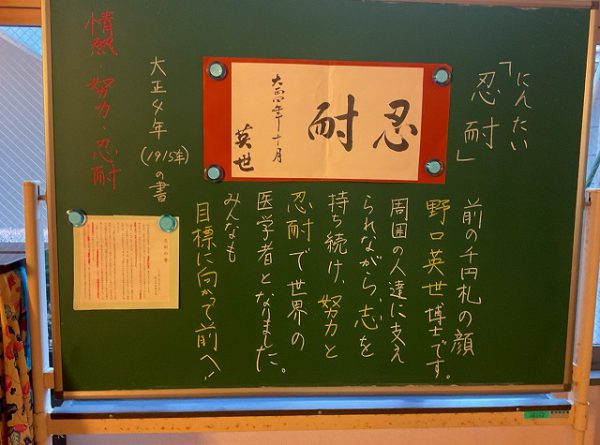 「忍耐」
にんたい
忍耐
大正四年十月
英世
前の千円札の顔
野口英世博士です。
周囲の人達に支え
られながら、志を
持ち続け、努力と
忍耐で世界の
医学者となりました。
みんなも
目標に向かって前へ!
大正4年
(1915年)の書
情熱・努力・忍耐